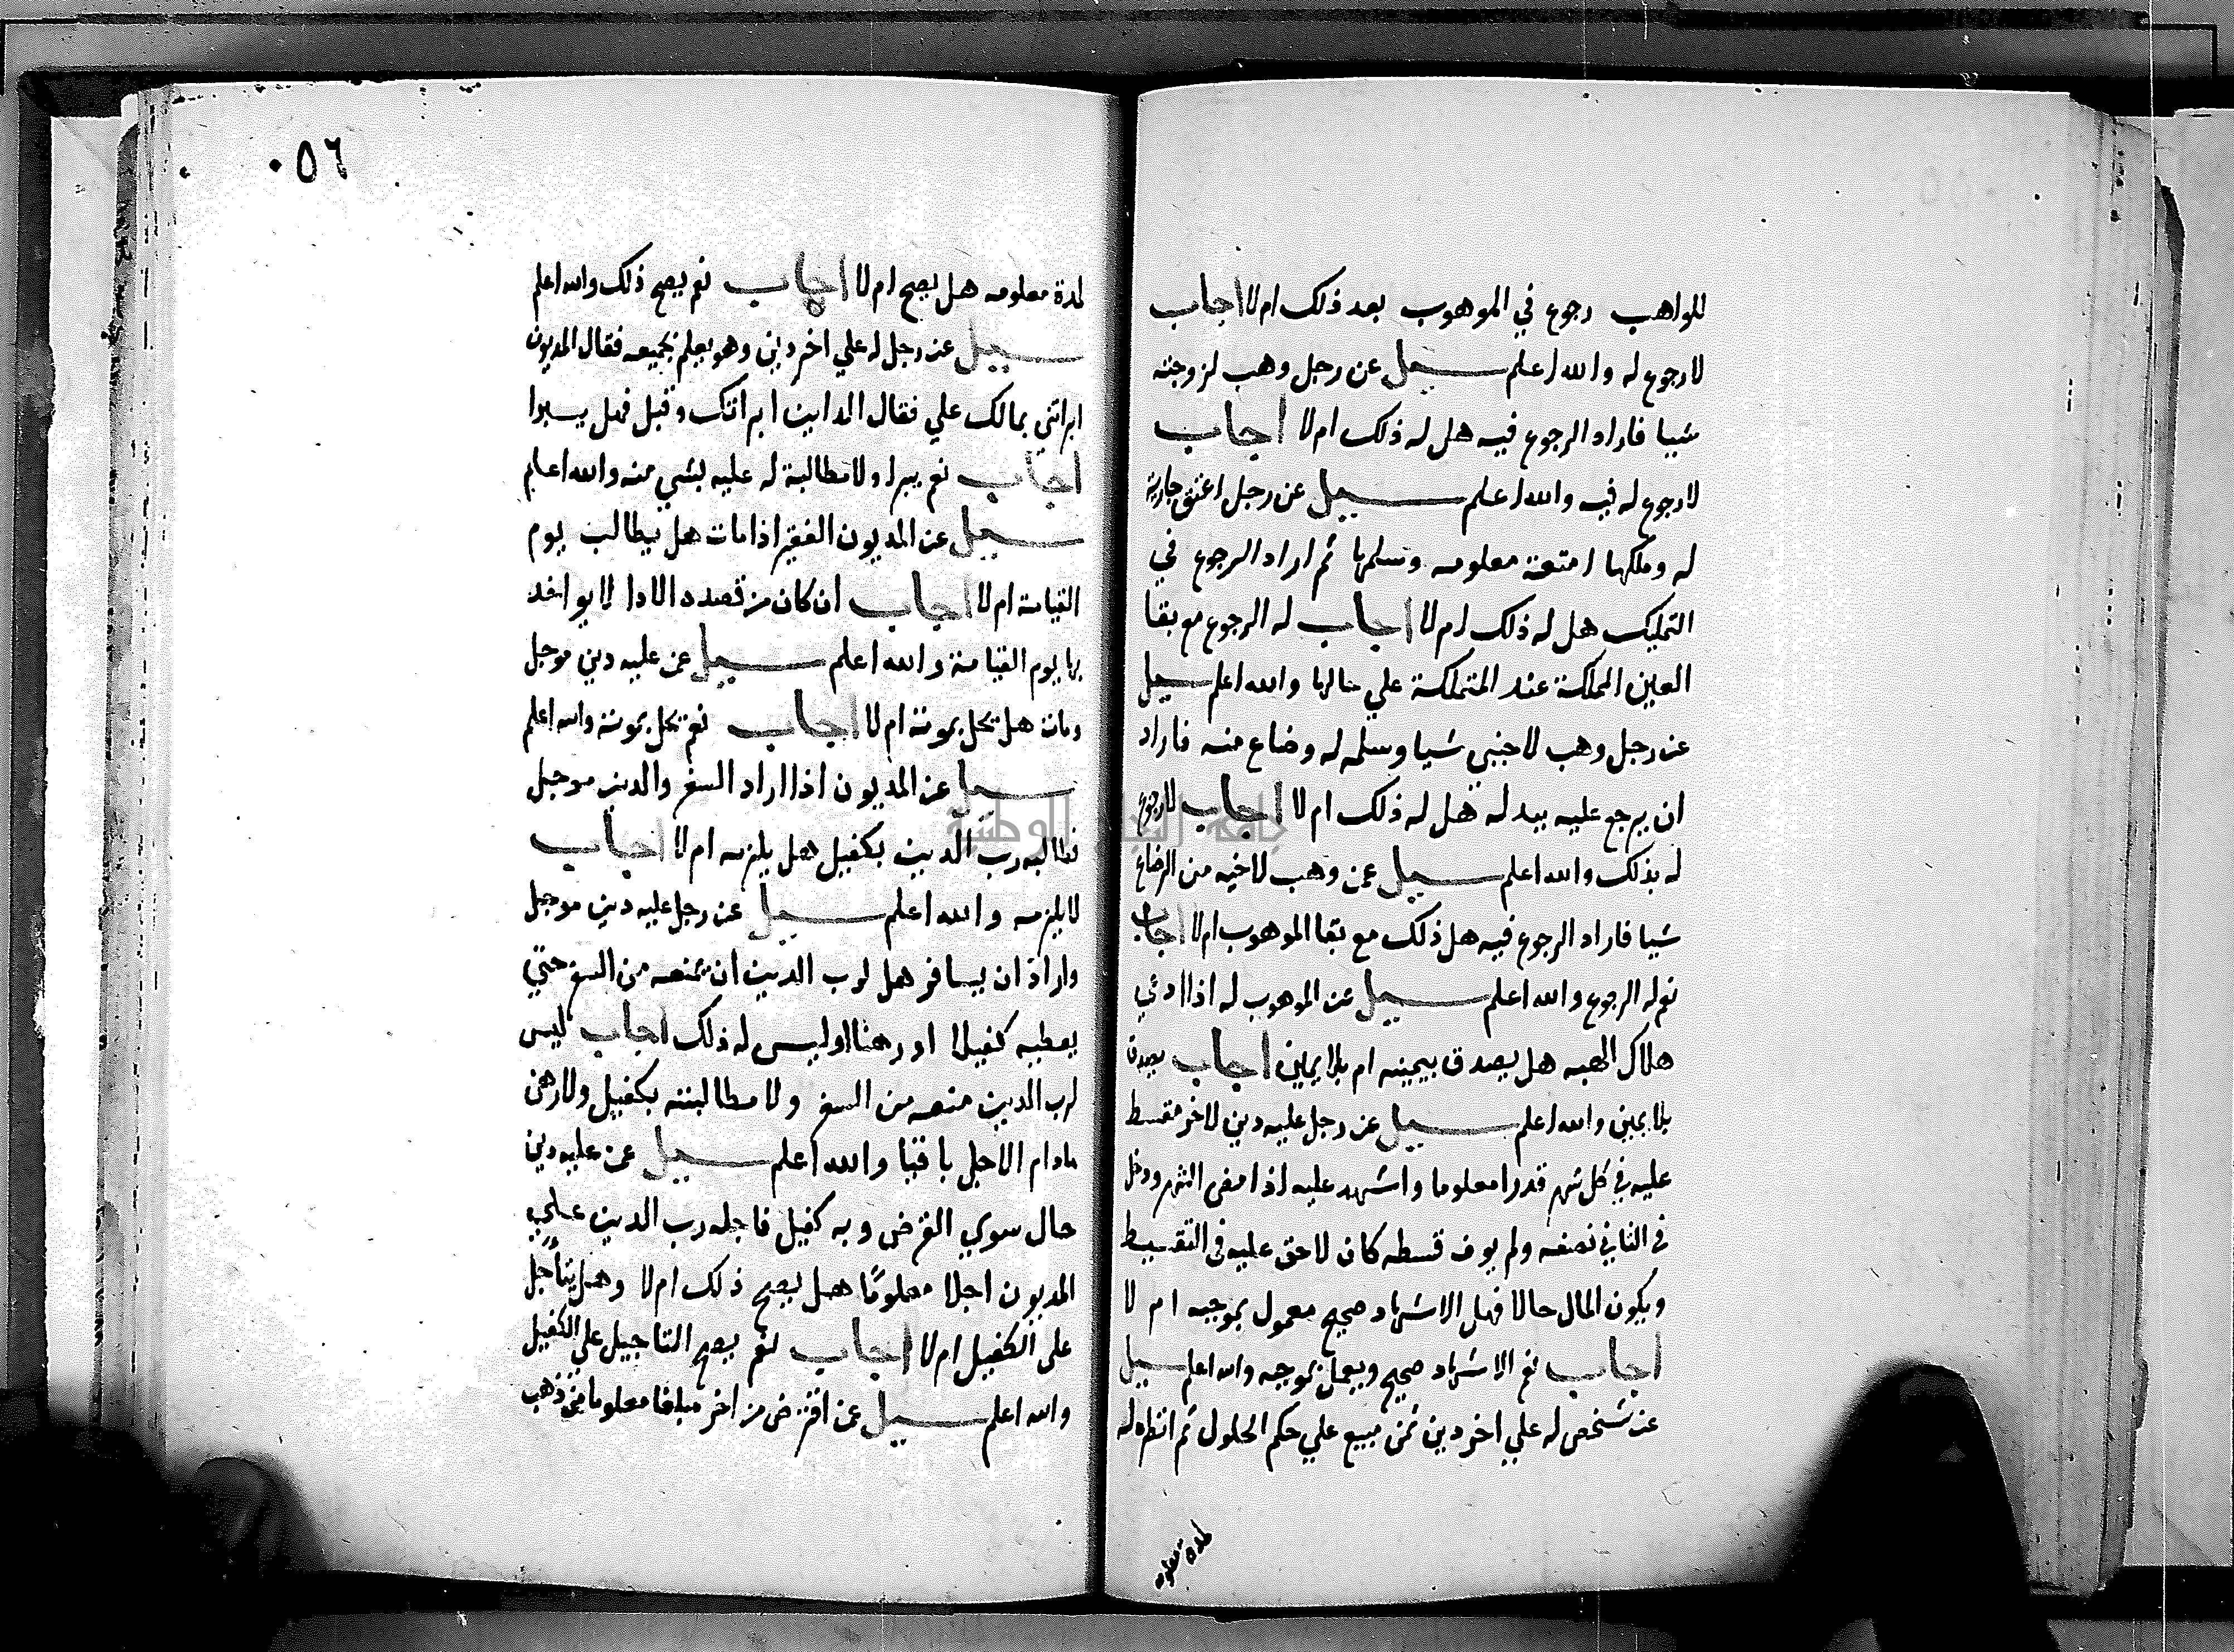 للواهب رجوع في الموهوب بعد ذلك ام لا اجاب
لا رجوع له والله اعلم سيل عن رجل وهب لزوجته
شيا فاراد الرجوع فيه هل له ذلك ام لا اجاب
لا رجوع له فيه والله اعلم سيل عن رجل اعتق جارية
له وملكها امتعة معلومه وسلمها ثم اراد الرجوع في
التمليك هل له ذلك ام لا اجاب له الرجوع مع بقا
العين المملكة عند المتملكة علي حالها والله اعلم سيل
عن رجل وهب لاجنبي شيا وسلمه له وضاع منه فاراد
ان يرجع عليه ببدله هل له ذلك ام لا اجاب لا رجوع
له بذلك والله اعلم سيل عمن وهب لاخيه من الرضاع
شيا فاراد الرجوع فيه هل ذلك مع بقا الموهوب ام لا اجاب
نعم له الرجوع والله اعلم سيل عن الموهوب له اذا ادعي
هلاك الهبه هل يصدق بيمينه ام بلا يمين اجاب يصدق
بلا يمين والله اعلم سيل عن رجل عليه دين لاخر مقسط
عليه في كل شهر قدرا معلوما واشهد عليه اذا مضى الشهر ودخل
في الثاني نصفه ولم يوف قسطه كان لا حق عليه في التقسيط
ويكون المال حالا فهل الاشهاد صحيح معمول بموجبه ام لا
اجاب نعم الاشهاد صحيح ويعمل بموجبه والله اعلم سيل
عن شخص له علي اخر دين ثمن مبيع علي حكم الحلول ثم انظره له
لمدة معلومه
٠٥٦
لمدة معلومه هل يصح ام لا اجاب نعم يصح ذلك والله اعلم
سيل عن رجل له علي اخر دين وهو يعلم بجميعه فقال المديون
ابراتني بمالك علي فقال الداين ابراتك وقبل فهل يبرا
اجاب نعم يبرا ولا مطالبة له عليه بشي منه والله اعلم
سيل عن المديون الفقير اذا مات هل يطالب يوم
القيامة ام لا اجاب ان كان من قصده الادا لا يواخذ
بها يوم القيامة والله اعلم سيل عمن عليه دين موجل
ومات هل يحل بموته ام لا اجاب نعم يحل بموته والله اعلم
سيل عن المديون اذا اراد السفر والدين موجل
فطالبه رب الدين بكفيل هل يلزمه ام لا اجاب
لا يلزمه والله اعلم سيل عن رجل عليه دين موجل
واراد ان يسافر هل لرب الدين ان يمنعه من السفر حتي
يعطيه كفيلا او رهنا اوليس له ذلك اجاب ليس
لرب الدين منعه من السفر ولا مطالبته بكفيل ولا رهن
مادام الاجل باقيا والله اعلم سيل عمن عليه دين
حال سوي القرض وبه كفيل فاجله رب الدين علي
المديون اجلا معلومًا هل يصح ذلك ام لا وهل يتأجل
على الكفيل ام لا اجاب نعم يصح التاجيل علي الكفيل
والله اعلم سيل عمن اقترض من اخر مبلغا معلوما من ذهب
جامعة النجاح الوطنية